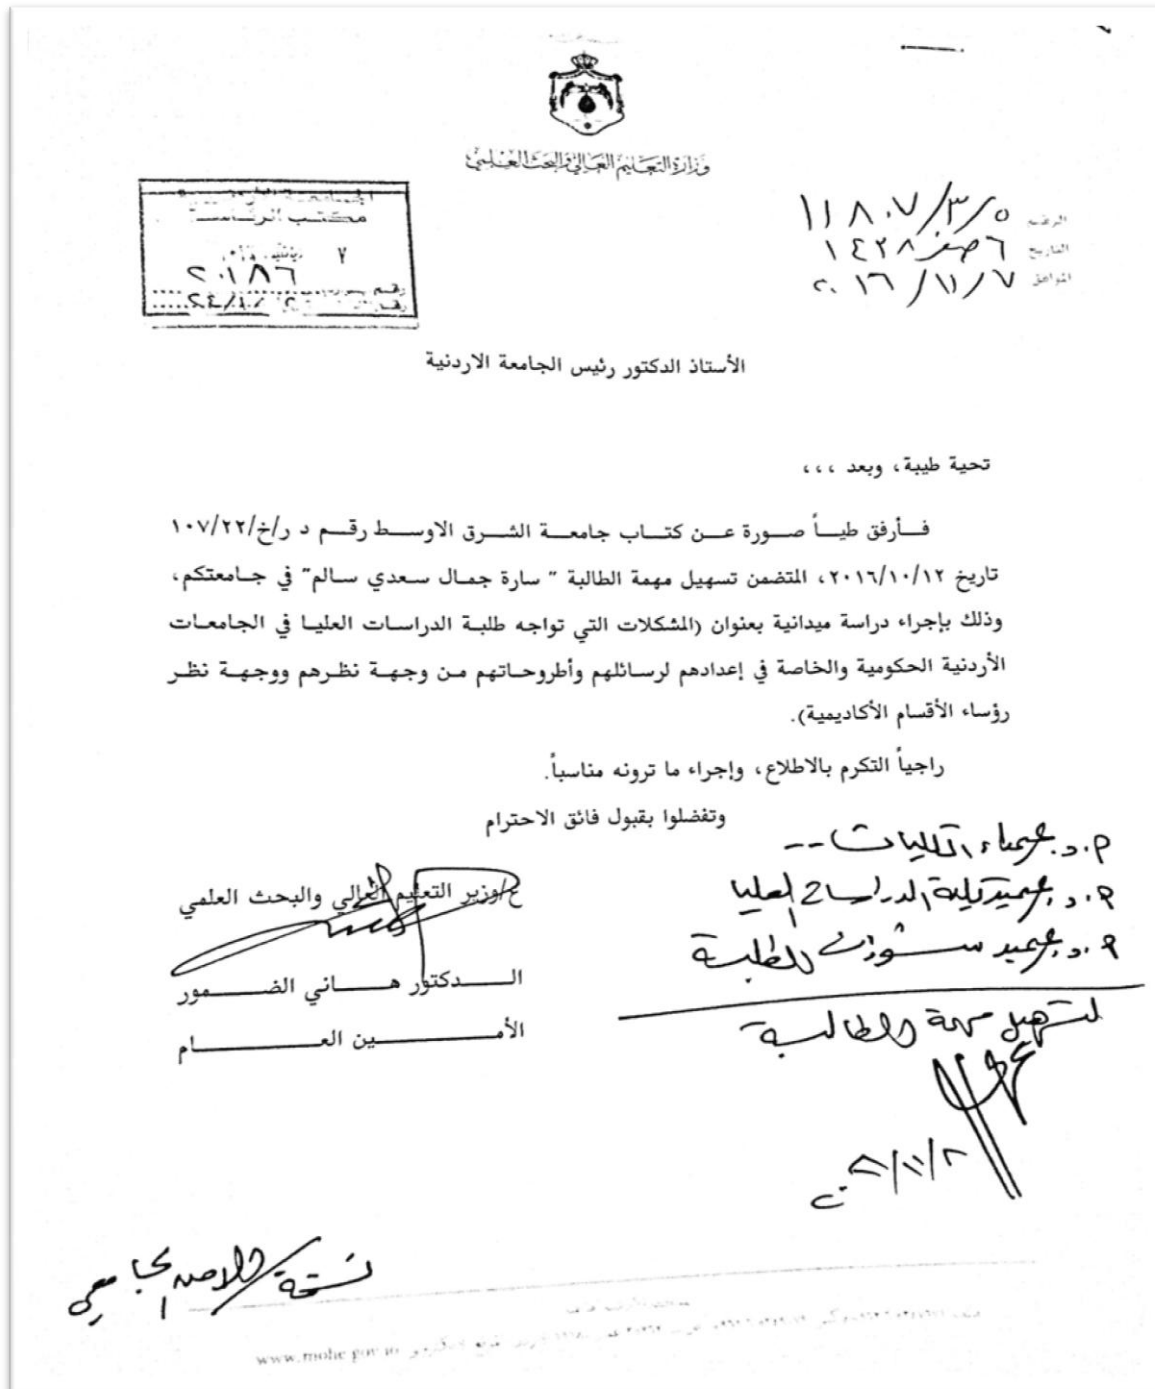 وزارة التعليم العالي والبحث العلمي
الرقم ١١٨٠٧/٣/٥
التاريخ ٦ صفر ١٤٣٨
الموافق ٢٠١٦/١١/٧
مكتب الرئاسة
٧
٢٠١٨٦
الأستاذ الدكتور رئيس الجامعة الاردنية
تحية طيبة، وبعد ،،،
فأرفق طياً صورة عن كتاب جامعة الشرق الاوسط رقم د ر/خ/١٠٧/٢٢
تاريخ ٢٠١٦/١٠/١٢، المتضمن تسهيل مهمة الطالبة " سارة جمال سعدي سالم" في جامعتكم،
وذلك بإجراء دراسة ميدانية بعنوان (المشكلات التي تواجه طلبة الدراسات العليا في الجامعات
الأردنية الحكومية والخاصة في إعدادهم لرسائلهم وأطروحاتهم من وجهة نظرهم ووجهة نظر
رؤساء الأقسام الأكاديمية).
راجياً التكرم بالاطلاع، وإجراء ما ترونه مناسباً.
وتفضلوا بقبول فائق الاحترام
ع/وزير التعليم العالي والبحث العلمي
الدكتور هاني الضمور
الأمين العام
أ.د. عمداء الكليات --
أ.د. عميد كلية الدراسات العليا
أ.د. عميد شؤون الطلبة
لتسهيل مهمة الطالبة
نسخة/ للأمن الجامعي
www.mohe.gov.jo